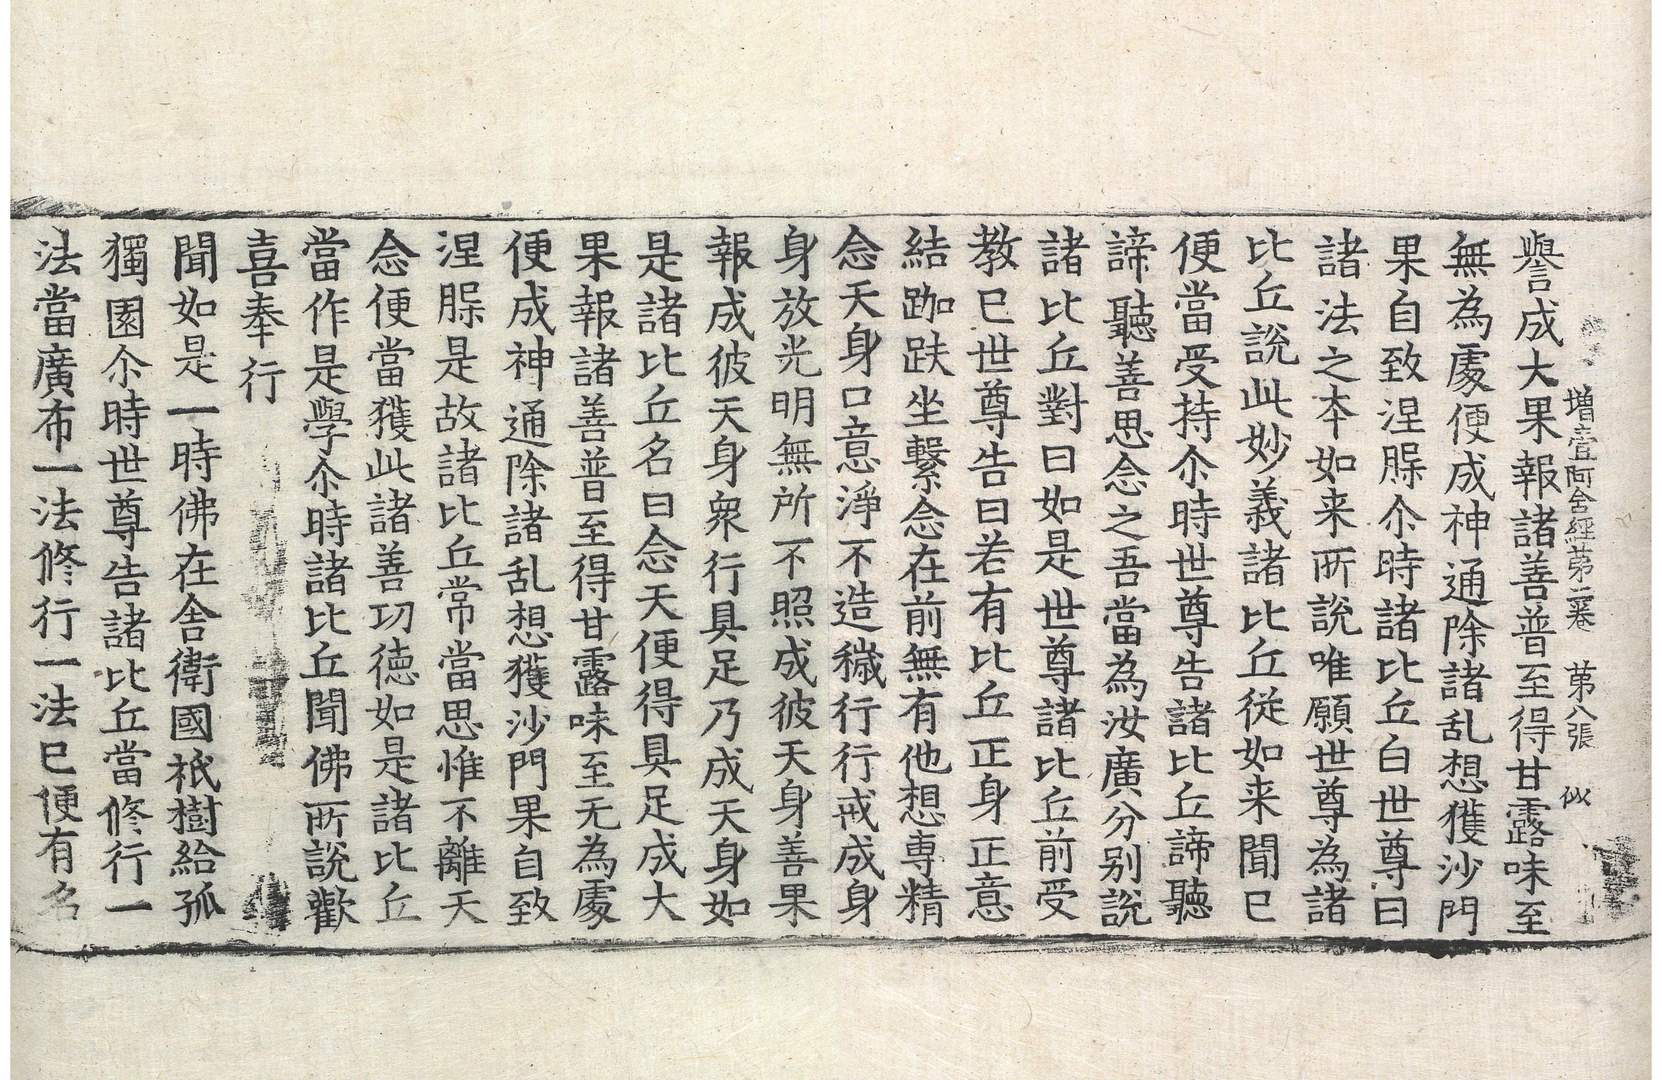 増壹阿含經第二卷 第八張 似
譽成大果報諸善普至得甘露味至
無為處便成神通除諸乱想獲沙門
果自致涅脲尒時諸比丘白世尊曰
諸法之本如来所說唯願世尊為諸
比丘說此妙義諸比丘従如来聞已
便當受持尒時世尊告諸比丘諦聽
諦聽善思念之吾當為汝廣分别說
諸比丘對曰如是世尊諸比丘前受
教已世尊告曰若有比丘正身正意
結跏趺坐繫念在前無有他想専精
念天身口意淨不造穢行行戒成身
身放光明無所不照成彼天身善果
報成彼天身衆行具足乃成天身如
是諸比丘名曰念天便得具足成大
果報諸善普至得甘露味至无為處
便成神通除諸乱想獲沙門果自致
涅脲是故諸比丘常當思惟不離天
念便當獲此諸善功德如是諸比丘
當作是學尒時諸比丘聞佛所說歡
喜奉行
聞如是一時佛在舎衛國祇樹給孤
獨園尒時世尊告諸比丘當修行一
法當廣布一法修行一法已便有名